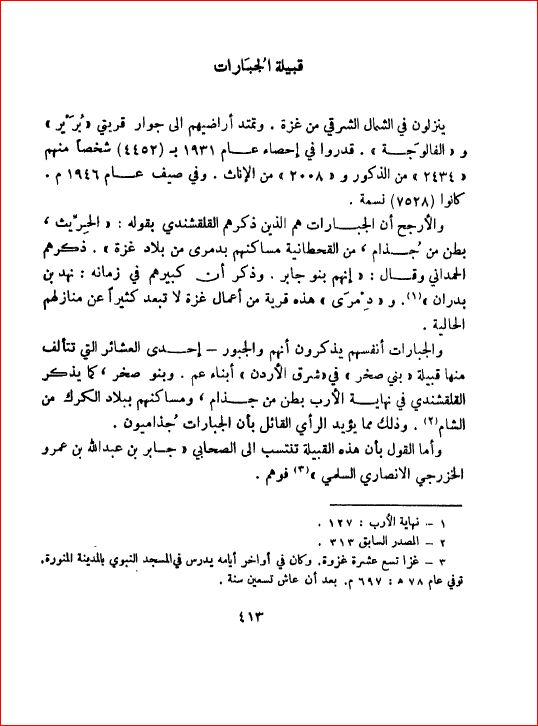 قبيلة الجبَارات
ينزلون في الشمال الشرقي من غزة . وتمتد أراضيهم الى جوار قريتي « بُرَيْر »
و « الفالوجة » . قدروا في إحصاء عام ١٩٣١ بـ (٤٤٥٢) شخصاً منهم
« ٢٤٣٤ » من الذكور و « ٢٠٠٨ » من الإناث . وفي صيف عام ١٩٤٦ م .
كانوا (٧٥٢٨) نسمة .
والأرجح أن الجبارات هم الذين ذكرهم القلقشندي بقوله : « الجِبريّث ،
بطن من جُذام ، من القحطانية مساكنهم بدمرى من بلاد غزة » . ذكرهم
الحمداني وقال : « إنهم بنو جابر . وذكر أن كبيرهم في زمانه : نهد بن
بدران »(١). و « دِمْرَى » هذه قرية من أعمال غزة لا تبعد كثيراً عن منازلهم
الحالية .
والجبارات أنفسهم يذكرون أنهم والجبور – إحدى العشائر التي تتألف
منها قبيلة « بني صخر » في « شرق الأردن » أبناء عم . وبنو صخر ، كما يذكر
القلقشندي في نهاية الأرب بطن من جذام ، ومساكنهم ببلاد الكرك من
الشام(٢) . وذلك مما يؤيد الرأي القائل بأن الجبارات جُذاميون .
وأما القول بأن هذه القبيلة تنتسب الى الصحابي « جابر بن عبدالله بن عمرو
الخزرجي الانصاري السلمي »(٣) فوهم .
١ – نهاية الأرب : ١٢٧ .
٢ – المصدر السابق ٣١٣ .
٣ – غزا تسع عشرة غزوة. وكان في أواخر أيامه يدرس في المسجد النبوي بالمدينة المنورة.
توفي عام ٧٨ هـ : ٦٩٧ م. بعد أن عاش تسعين سنة .
٤١٣